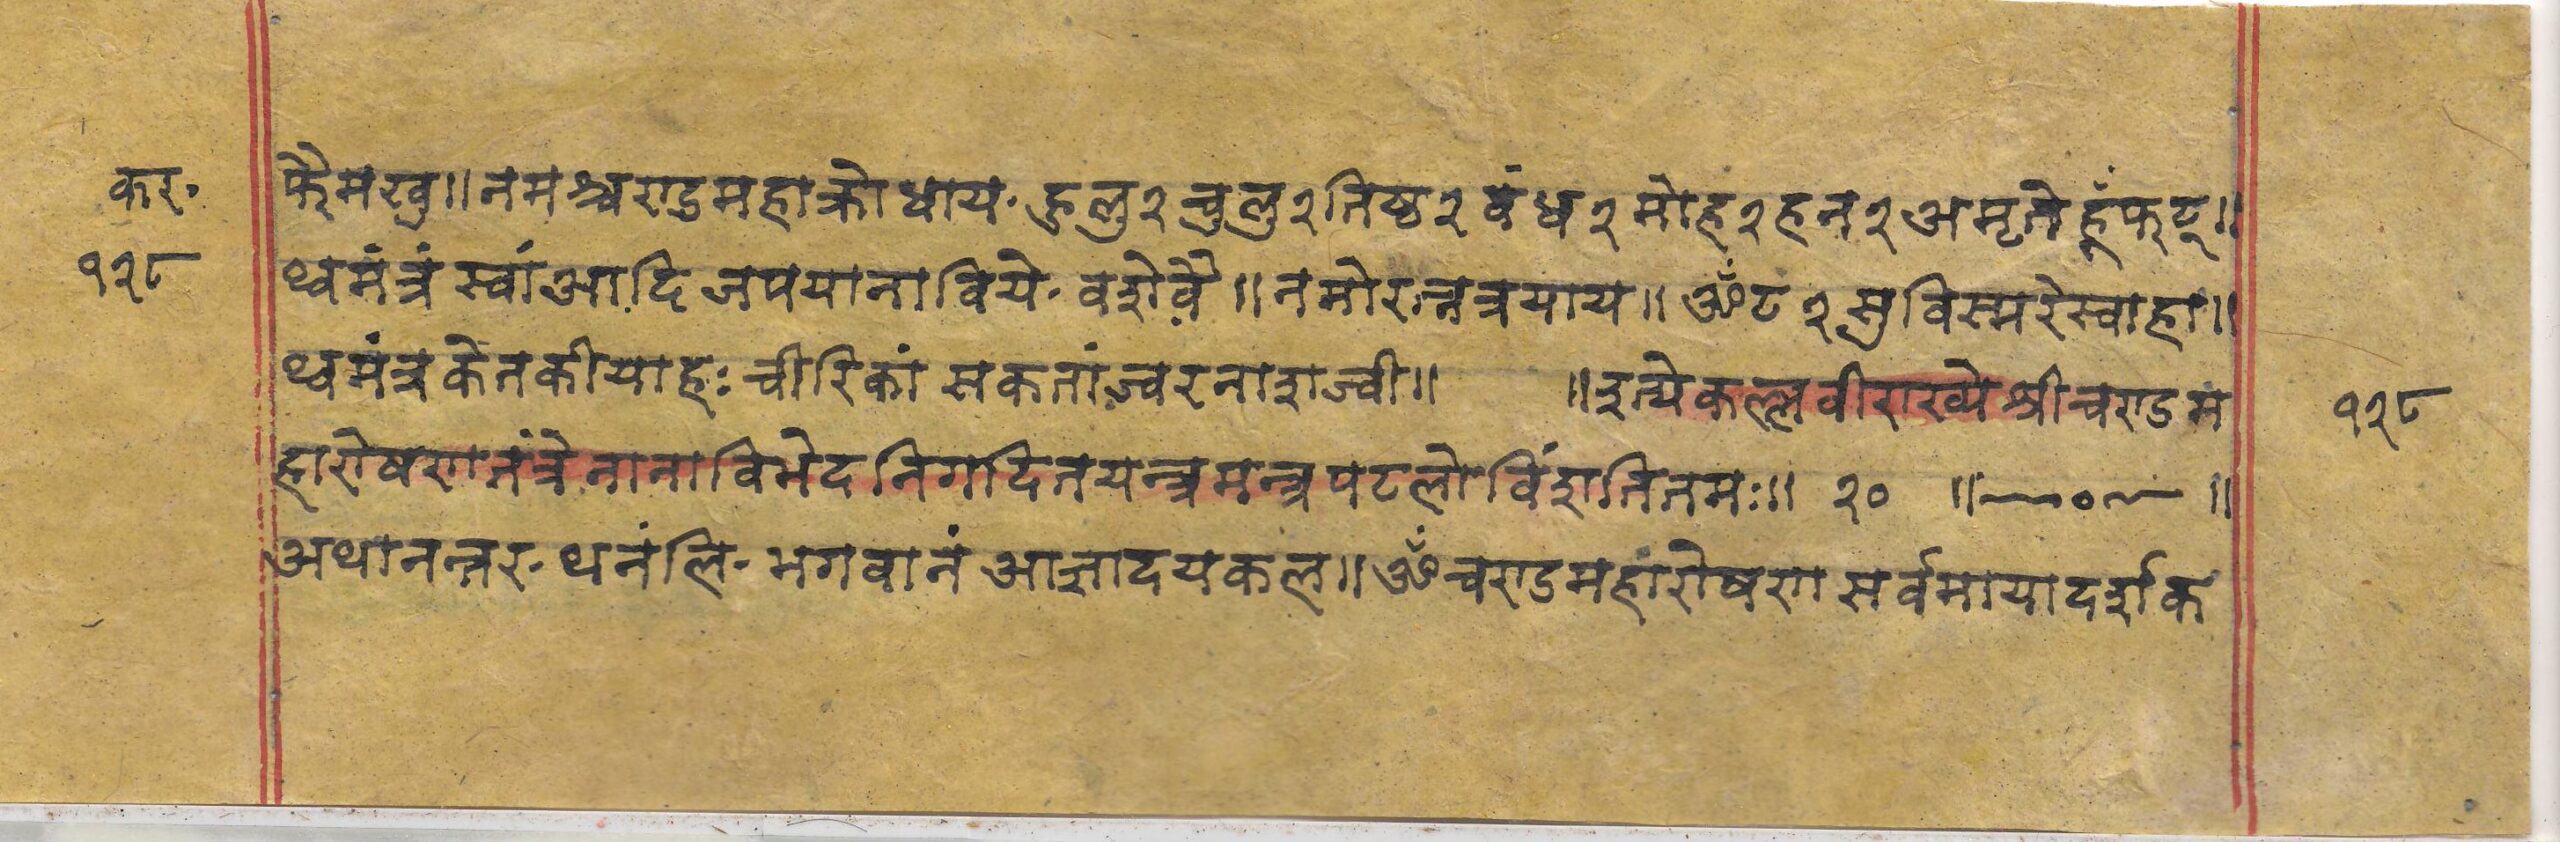 कर.
१२८
फैमखु॥नमश्चण्डमहाक्रोधाय. हुलु२चुलु२तिष्ठ२बंध२मोह२हन२अमृतेहूँफट्॥
थ्वमंत्रं स्वांआदि जपयानाविये. वशेवै॥नमोरत्नत्रयाय॥ॐट२सुविस्मरेस्वाहा॥
थ्वमंत्रकेतकीयाहः चीरिकां सकतांज्वरनाशज्वी॥ ॥इत्येकल्लवीराख्येश्रीचण्डम
१२८
हारोषणतंत्रेनानाविभेदनिगदितयन्त्रमन्त्रपटलोविंशतितमः॥ २० ॥ ॥
अथानन्तर. थनंलि. भगवानं आज्ञादयकल॥ॐचण्डमहारोषण सर्वमायादर्शक